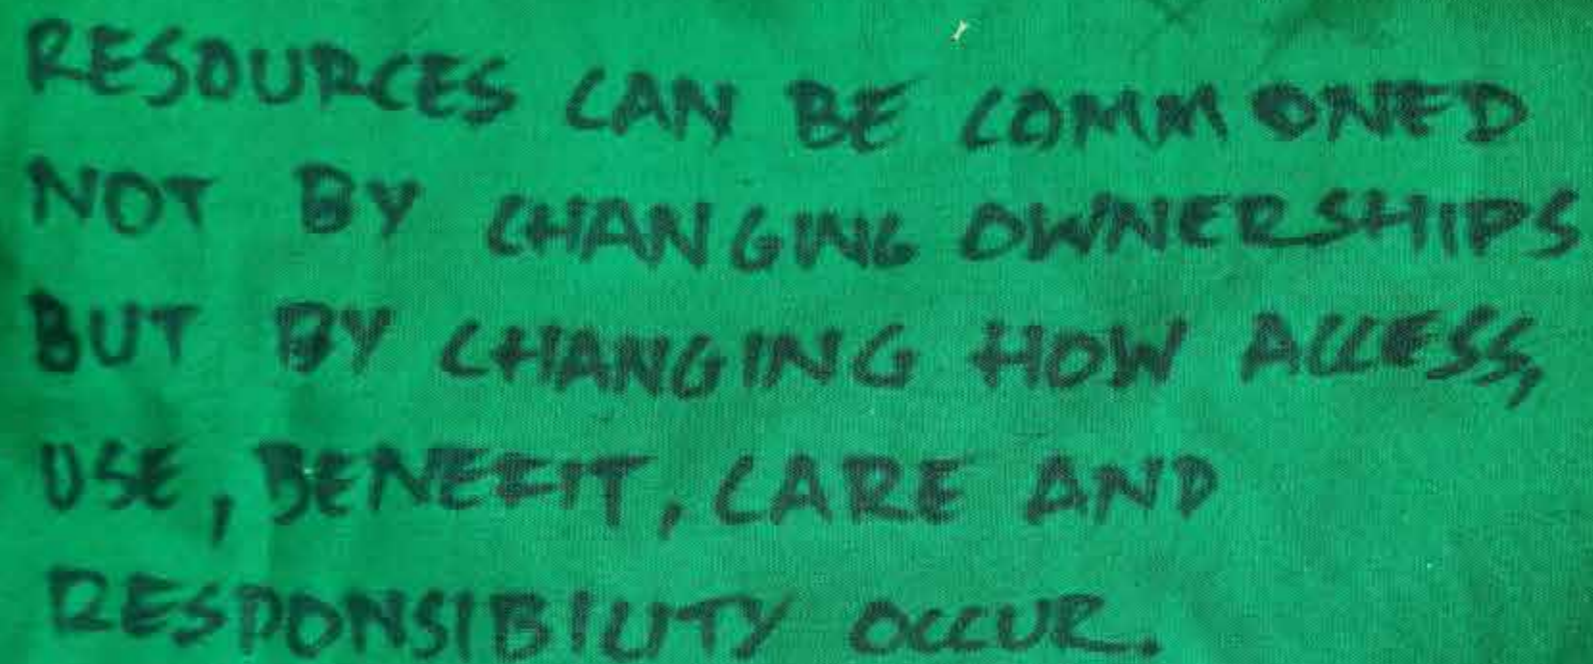 RESOURCES CAN BE COMMONED
NOT BY CHANGING OWNERSHIPS
BUT BY CHANGING HOW ACCESS,
USE, BENEFIT, CARE AND
RESPONSIBILITY OCCUR.